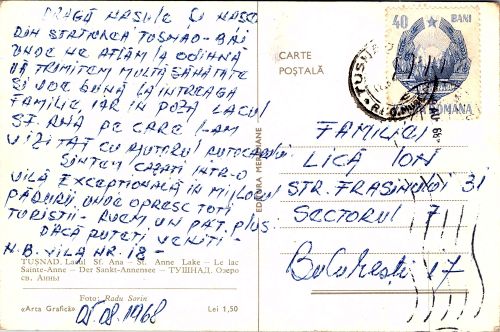 DRAGĂ NAȘULE ȘI NAȘĂ
DIN STAȚIUNEA TUȘNAD-BĂI
UNDE NE AFLĂM LA ODIHNĂ
VĂ TRIMITEM MULTĂ SĂNĂTATE
ȘI VOE BUNĂ LA ÎNTREAGA
FAMILIE, IAR ÎN POZĂ LACUL
SF. ANA PE CARE L-AM
VIZITAT CU AJUTORUL AUTOCARULUI.
SÎNTEM CAZAȚI INTR-O
VILĂ EXCEPȚIONALĂ ÎN MIJLOCUL
PĂDURII, UNDE OPRESC TOȚI
TURIȘTII - AVEM UN PAT PLUS.
DACĂ PUTEȚI VENIȚI -
N.B. VILA NR. 18 -
TUȘNAD. Lacul Sf. Ana - St. Anne Lake - Le lac
Sainte-Anne - Der Sankt-Annensee - ТУШНАД. Озеро
св. Анны
Foto: Radu Sorin
«Arta Grafică» Lei 1,50
01.08.1968
EDITURA MERIDIANE
CARTE
POȘTALĂ
40 BANI
POSTA ROMANA
TUȘNAD
FAMILIEI
LICĂ ION
STR. FRASINULUI 31
SECTORUL 7
București 17